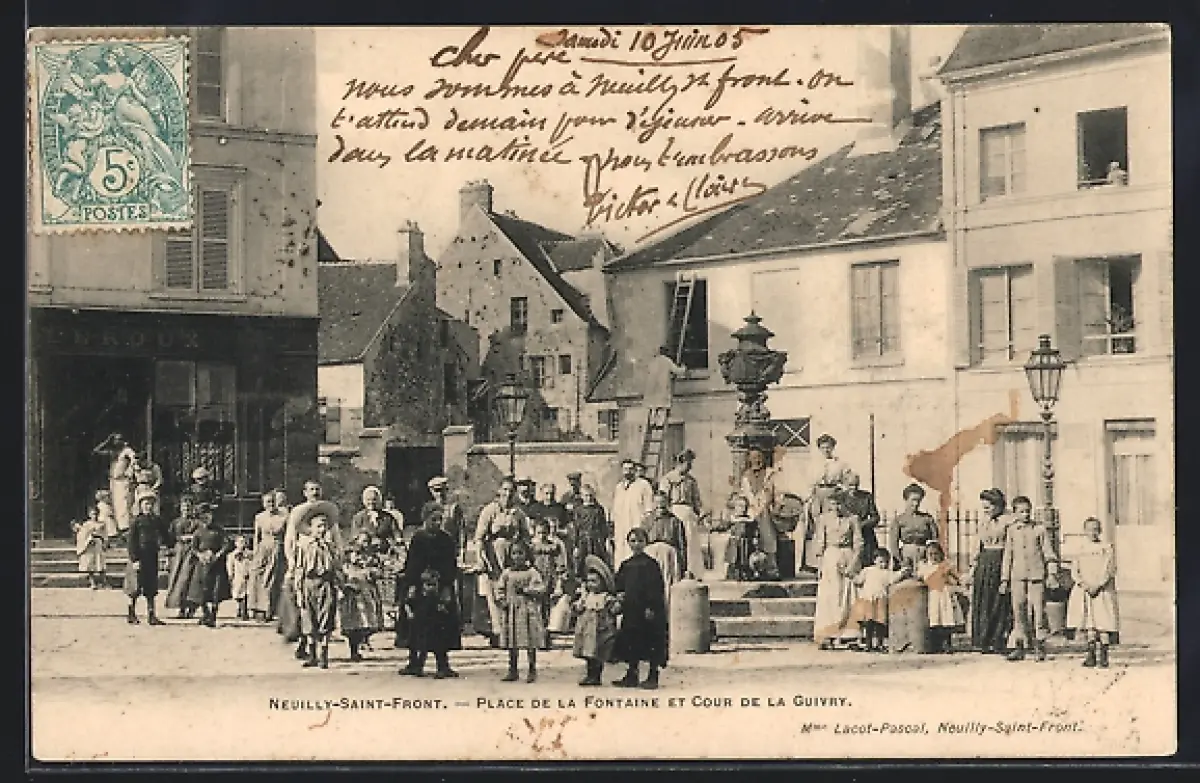 Samedi 10 Juin 05
Cher père
nous sommes à Neuilly St front. on
t'attend demain pour déjeuner. arrive
dans la matinée nous t'embrassons
Victor & Claire
5c
POSTES
LEROUX
NEUILLY-SAINT-FRONT. — PLACE DE LA FONTAINE ET COUR DE LA GUIVRY.
Mme Lacot-Pascal, Neuilly-Saint-Front.